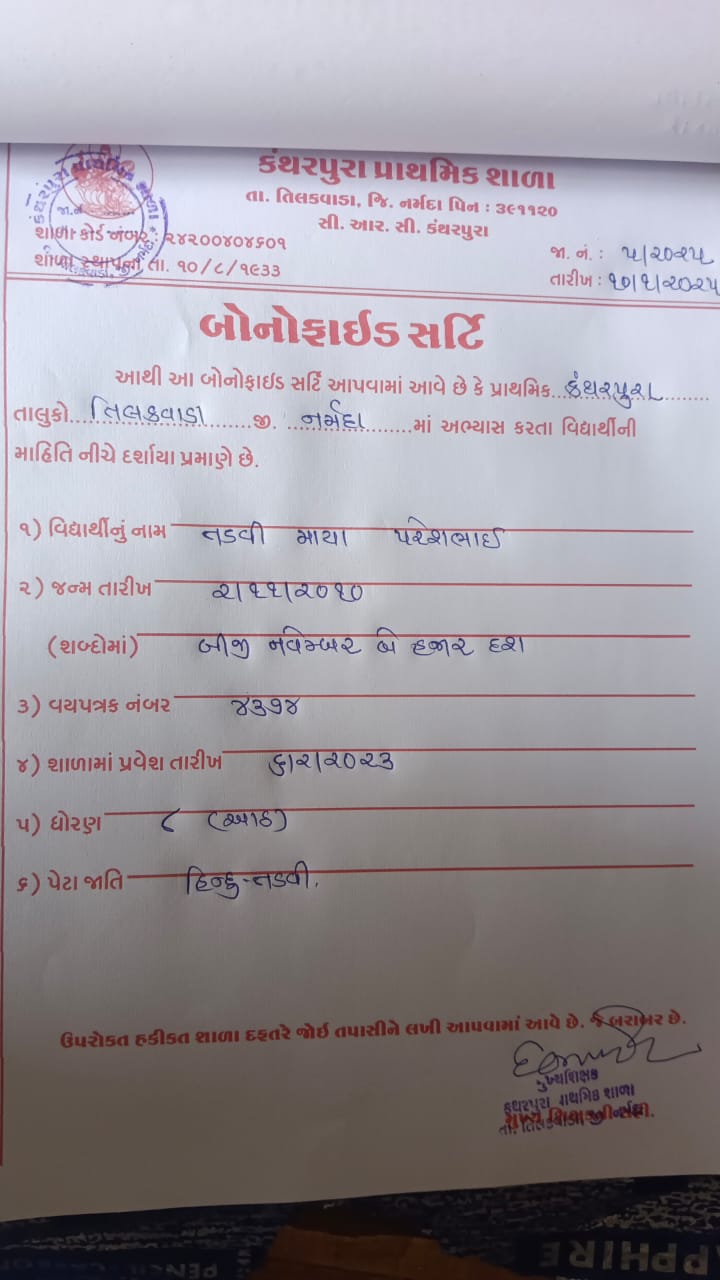 કંથરપુરા પ્રાથમિક શાળા
તા. તિલકવાડા, જિ. નર્મદા પિન : ૩૯૧૧૨૦
સી. આર. સી. કંથરપુરા
શાળા કોર્ડ નંબર : ૨૪૨૦૦૪૦૪૬૦૧
શાળા સ્થાપના તા. ૧૦/૮/૧૯૩૩
જા. નં. : ૫/૨૦૨૫
તારીખ : ૧૦/૧/૨૦૨૫
બોનોફાઈડ સર્ટિ
આથી આ બોનોફાઈડ સર્ટિ આપવામાં આવે છે કે પ્રાથમિક...કંથરપુરા.........
તાલુકો...તિલકવાડા.......જી. ...નર્મદા.......માં અભ્યાસ કરતા વિદ્યાર્થીની
માહિતિ નીચે દર્શાયા પ્રમાણે છે.
૧) વિદ્યાર્થીનું નામ તડવી માયા પરેશભાઈ
૨) જન્મ તારીખ ૨/૧૧/૨૦૧૦
(શબ્દોમાં) બીજી નવેમ્બર બે હજાર દશ
૩) વયપત્રક નંબર ૪૩૧૪
૪) શાળામાં પ્રવેશ તારીખ ૬/૨/૨૦૨૩
૫) ધોરણ ૮ (આઠ)
૬) પેટા જાતિ હિન્દુ-તડવી.
ઉપરોકત હકીકત શાળા દફતરે જોઈ તપાસીને લખી આપવામાં આવે છે. જે બરાબર છે.
મુખ્યશિક્ષક
કંથરપુરા પ્રાથમિક શાળા
તા. તિલકવાડા જી નર્મદા